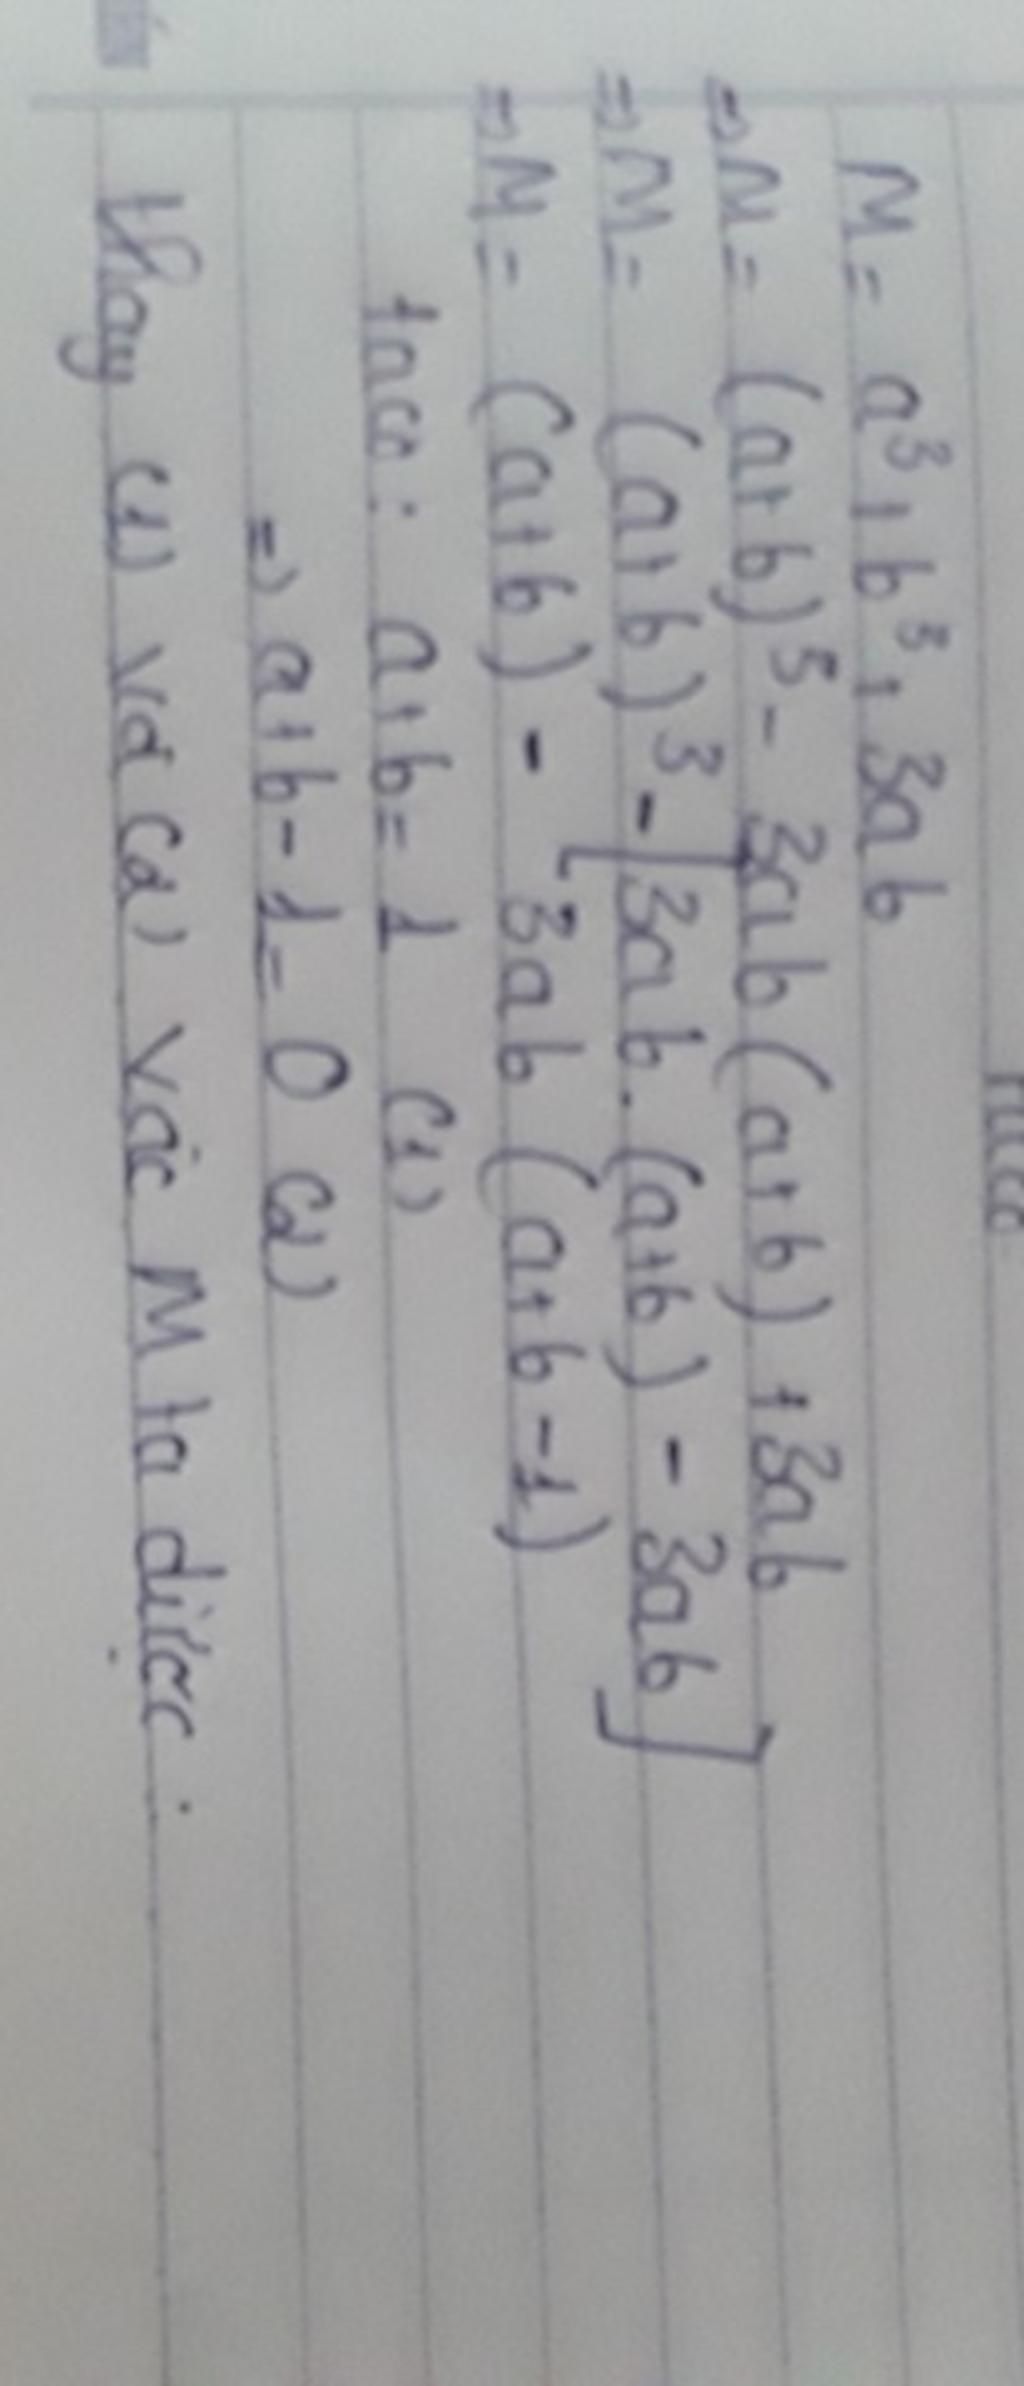 M = a³ + b³ + 3ab
=> M = (a+b)³ - 3ab(a+b) + 3ab
=> M = (a+b)³ - [3ab.(a+b) - 3ab]
=> M = (a+b) - 3ab (a+b-1)
ta có: a+b = 1 (1)
=> a+b-1 = 0 (2)
Thay (1) và (2) vào M ta được: